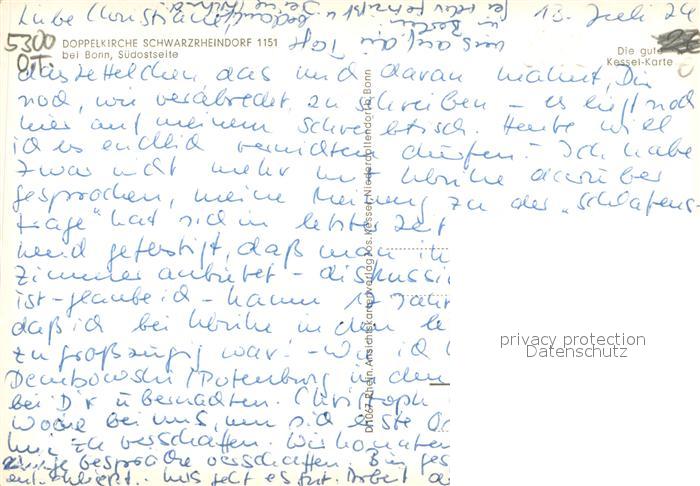 Liebe Christiane! 13. Juli 24
5300
D.T.
DOPPELKIRCHE SCHWARZRHEINDORF 1151
bei Bonn, Südostseite
Die gute
Kessel-Karte
in Berlin
das Zettelchen das mich daran mahnt, Dir
noch, wie verabredet, zu schreiben - es liegt noch
hier auf meinem Schreibtisch. Heute will
ich es endlich vernichten dürfen! Ich habe
zwar nicht mehr mit Ulrike darüber
gesprochen, meine Meinung zu der "Schlafens-
frage" hat sich in letzter Zeit
gefestigt, daß man ih
Zimmer anbietet - diskussi
ist - glaube ich - kaum 17 Jahr
daß ich bei Ulrike in den le
zu großzügig war! - Wie ich
Dembowski / Rotenburg in den
bei Dir übernachten. Christoph
Woche bei uns, um sich erste
zu verschaffen. Wir konnten
Gespräche verschaffen. Bin
uns geht es gut. Arbeit
DM1067 Rhein. Ansichtskartenverlag Jos. Kessel, Niederdollendorf b. Bonn
privacy protection
Datenschutz